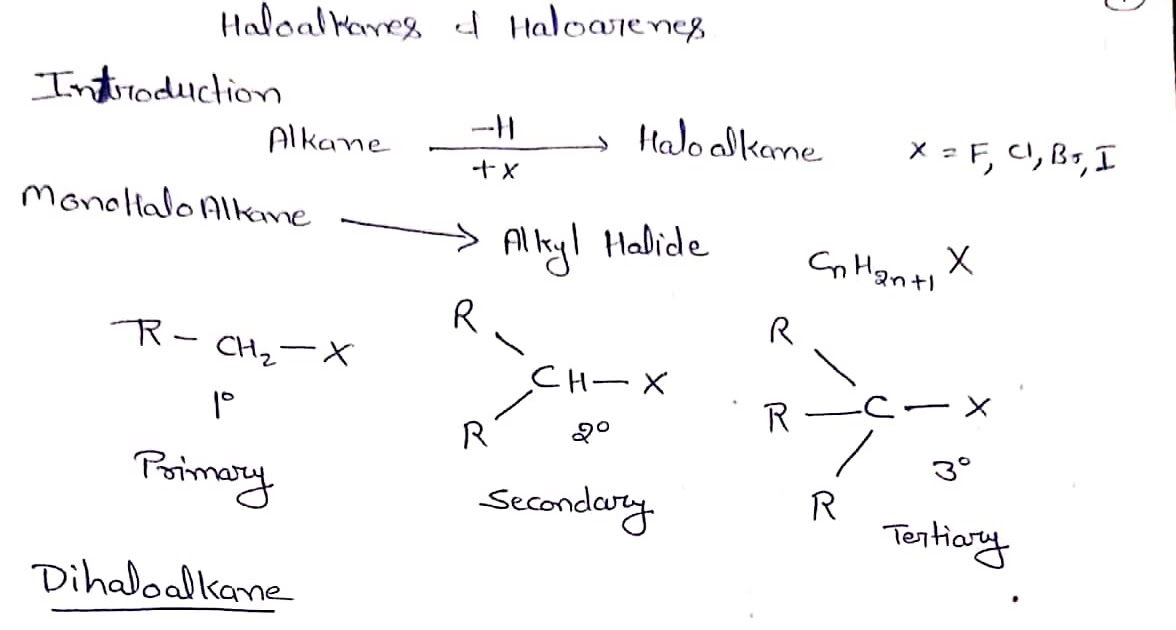 Haloalkanes & Haloarenes
Introduction
Alkane —H / +X → Haloalkane X = F, Cl, Br, I
MonoHaloAlkane → Alkyl Halide
CnH2n+1 X
R — CH2 — X
1°
Primary
R
CH — X
R
2°
Secondary
R
R — C — X
R
3°
Tertiary
Dihaloalkane